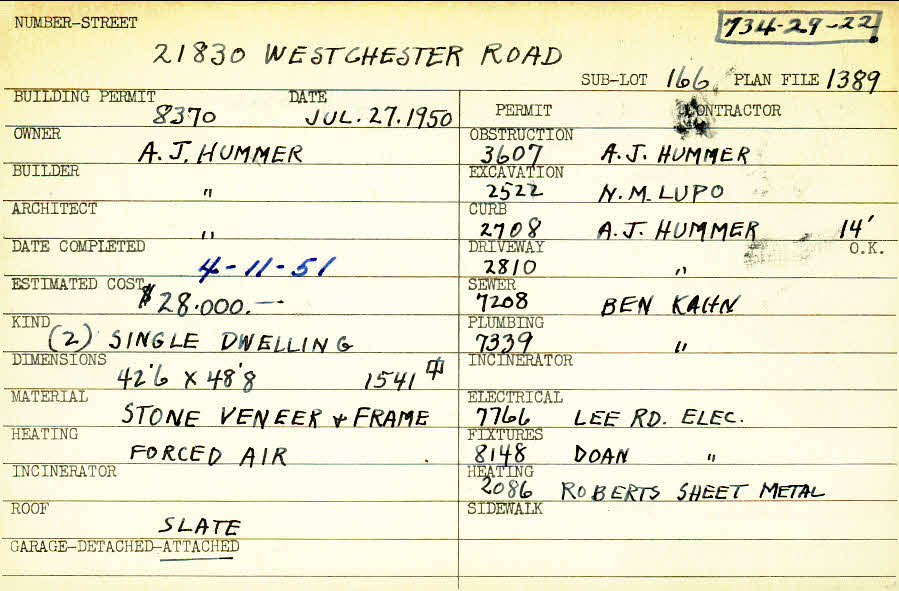 NUMBER-STREET
734-29-22
21830 WESTCHESTER ROAD
SUB-LOT 166 PLAN FILE 1389
BUILDING PERMIT DATE
8370 JUL. 27. 1950
OWNER
A.J. HUMMER
BUILDER
"
ARCHITECT
"
DATE COMPLETED
4-11-51
ESTIMATED COST
$28.000.--
KIND
(2) SINGLE DWELLING
DIMENSIONS
42'6 X 48'8 1541
MATERIAL
STONE VENEER & FRAME
HEATING
FORCED AIR
INCINERATOR
ROOF
SLATE
GARAGE-DETACHED-ATTACHED
PERMIT CONTRACTOR
OBSTRUCTION
3607 A.J. HUMMER
EXCAVATION
2522 N.M. LUPO
CURB
2708 A.J. HUMMER 14'
DRIVEWAY O.K.
2810 "
SEWER
7208 BEN KAHN
PLUMBING
7339 "
INCINERATOR
ELECTRICAL
7766 LEE RD. ELEC.
FIXTURES
8148 DOAN "
HEATING
2086 ROBERTS SHEET METAL
SIDEWALK